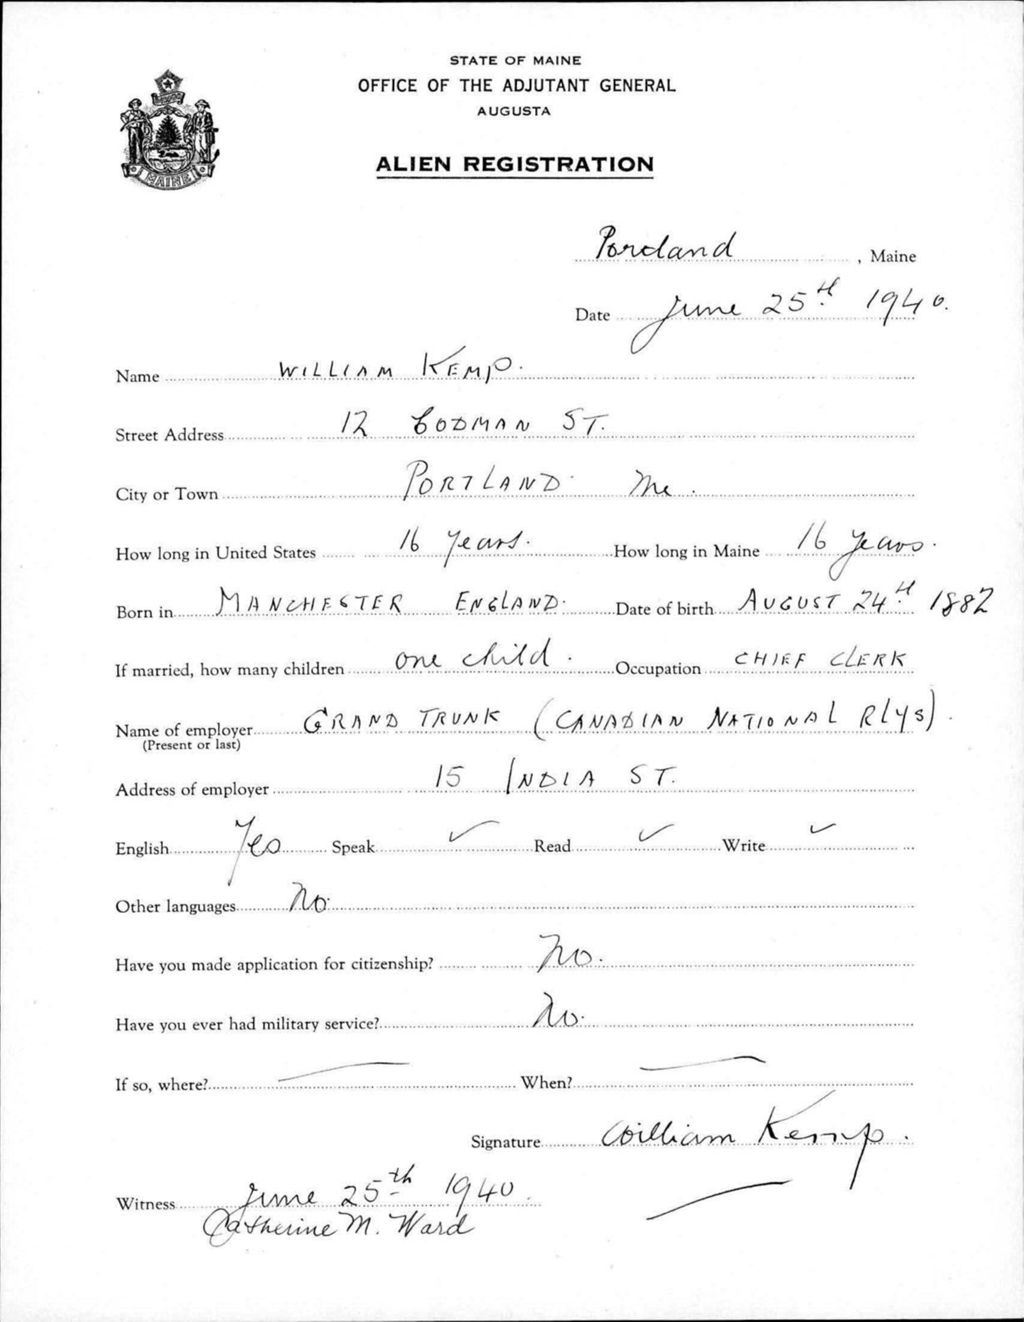 STATE OF MAINE
OFFICE OF THE ADJUTANT GENERAL
AUGUSTA
ALIEN REGISTRATION
MAINE
Portland, Maine
Date June 25th 1940.
Name WILLIAM KEMP.
Street Address 12 CODMAN ST.
City or Town PORTLAND. Me.
How long in United States 16 years. How long in Maine 16 years.
Born in MANCHESTER ENGLAND. Date of birth AUGUST 24th 1882
If married, how many children one child. Occupation CHIEF CLERK
Name of employer GRAND TRUNK (CANADIAN NATIONAL Rlys).
(Present or last)
Address of employer 15 INDIA ST.
English Yes Speak ✓ Read ✓ Write ✓
Other languages No.
Have you made application for citizenship? No.
Have you ever had military service? No.
If so, where? — When? —
Signature William Kemp.
Witness June 25th 1940.
Catherine M. Ward